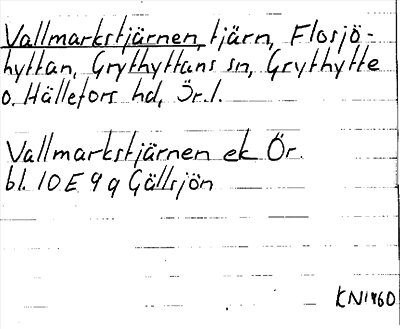 Vallmarkstjärnen, tjärn, Flosjö-
hyttan, Grythyttans sn, Grythytte
o. Hällefors hd, Ör. l.
Vallmarkstjärnen ek Ör.
bl. 10E 9g Gällsjön
KN1960